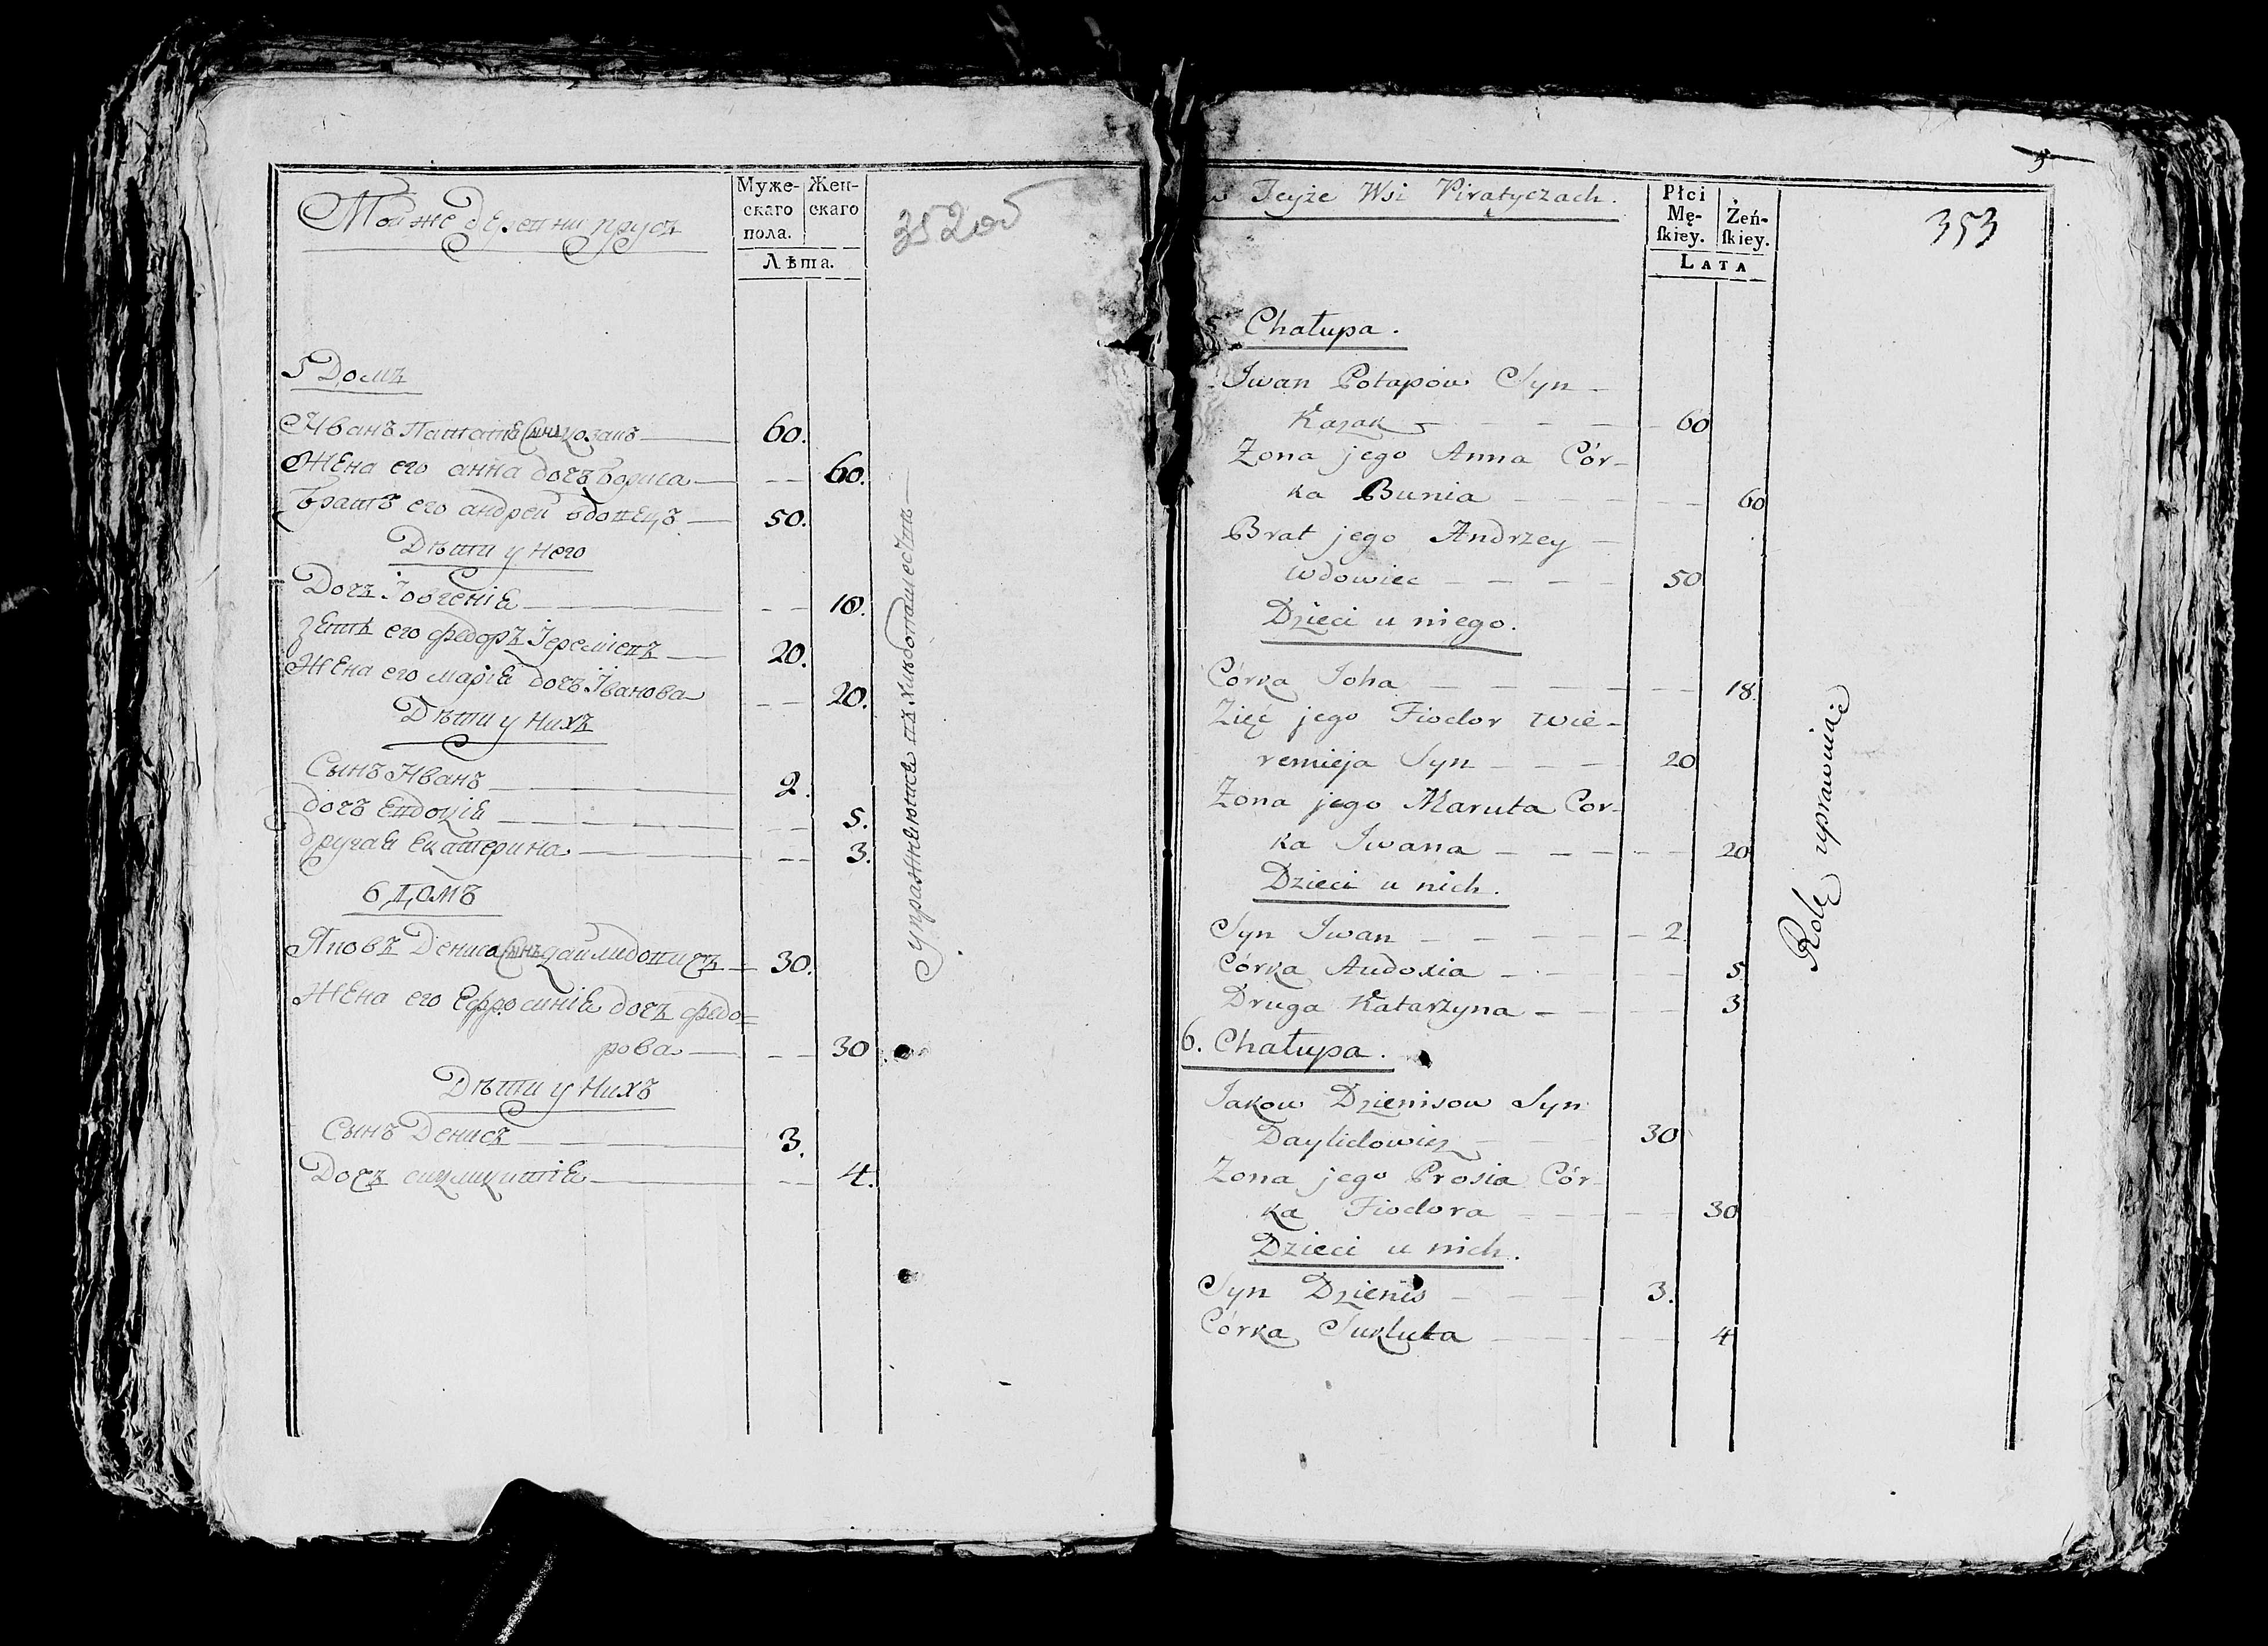 Тойже деревни прусъ
Муже-
скаго
пола.
Жен-
скаго
Лѣта.
352об
5 Домъ
Иванъ Патапа Сынъ козакъ 60.
Жена его анна дочъ бориса 60.
братъ его андрей вдовецъ 50.
Дѣти у него
Дочъ 18.
зеть его федоръ Іеремієвъ 20.
Жена его маріа дочъ Іванова 20.
Дѣти у нихъ
Сынъ Иванъ 2.
дочъ Евдокіа 5.
другаа екатерина 3.
6 домъ
Яковъ Дениса Сынъ дайлидовичъ 30.
Жена его Ефросиніа дочъ федо=
рова 30
Дѣти у нихъ
Сынъ Денисъ 3.
Дочъ 4.
упражняются въ хлѣбопашестве
w Teyże Wsi Piratyczach.
Płci
Mę-
skiey.
Żeń-
skiey.
LATA
353
5 Chałupa.
Iwan Potapow Syn
Kazak 60
Zona jego Anna Cór-
ka Bunia 60
Brat jego Andrzey
wdowiec 50
Dzieci u niego.
Córka Joha 18.
Zięć jego Fiodor Wie-
remieja Syn 20
Zona jego Maruta Cor-
ka Iwana 20
Dzieci u nich.
Syn Iwan 2
Córka Audoxia 5
Druga Katarzyna 3
6. Chałupa.
Jakow Dzienisow Syn
Daylidowicz 30
Zona jego Prosia Cór-
ka Fiodora 30
Dzieci u nich.
Syn Dzienis 3.
Córka Sukluta 4
Rolę uprawniaią